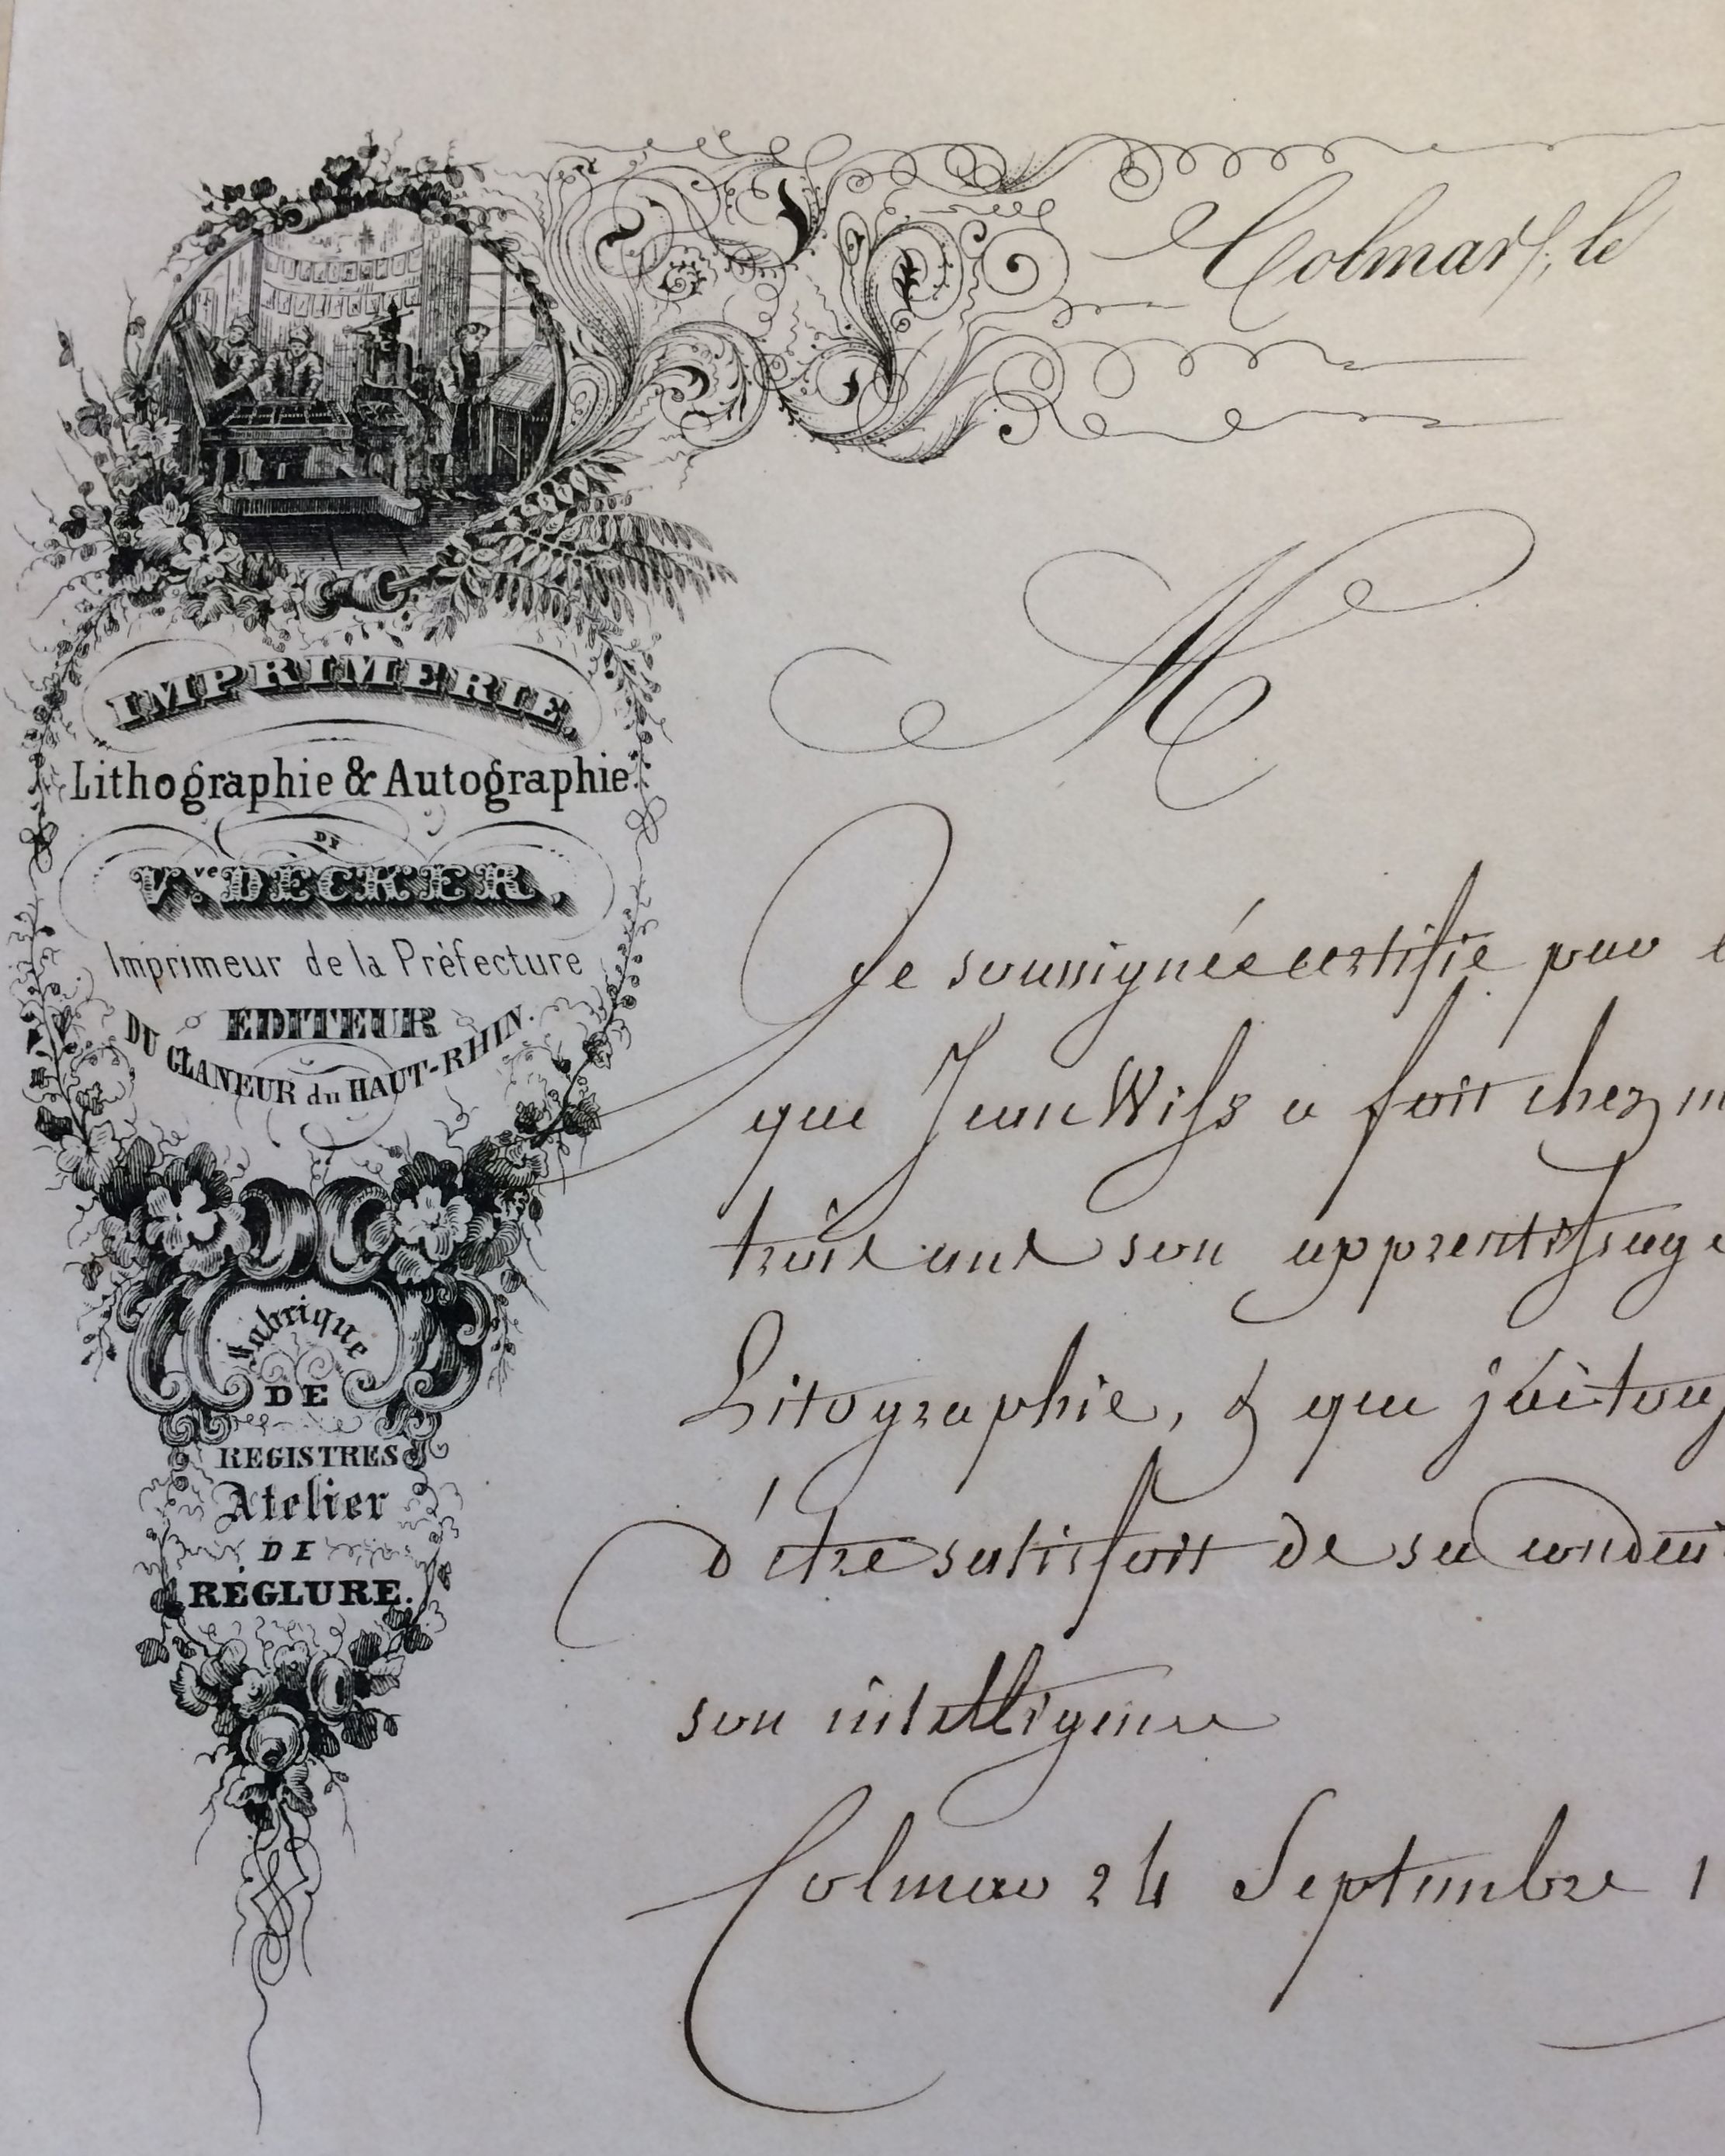 Colmar, le
IMPRIMERIE,
Lithographie & Autographie
DE
Vve DECKER,
Imprimeur de la Préfecture
EDITEUR
DU GLANEUR du HAUT-RHIN.
Fabrique
DE
REGISTRES
Atelier
DE
RÉGLURE.
M
Je soussignée certifie par
que Jean Wils a fait chez
trois ans son apprentissage
Litographie, & que j'ai
d'etre satisfait de sa
son intelligence
Colmar 24 Septembre 1